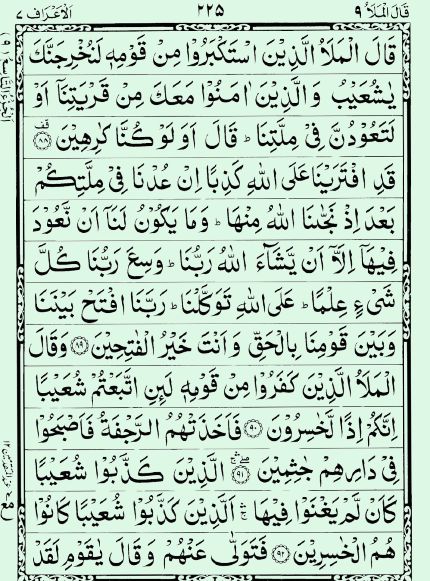 قَالَ الۡمَلَاُ ۹ ۲۲۵ اَلۡاَعۡرَاف ۷
قَالَ الۡمَلَاُ الَّذِيۡنَ اسۡتَكۡبَرُوۡا مِنۡ قَوۡمِهٖ لَنُخۡرِجَنَّكَ
يٰشُعَيۡبُ وَالَّذِيۡنَ اٰمَنُوۡا مَعَكَ مِنۡ قَرۡيَتِنَاۤ اَوۡ
لَتَعُوۡدُنَّ فِىۡ مِلَّتِنَا‌ؕ قَالَ اَوَلَوۡ كُنَّا كٰرِهِيۡنَ ۟ۚ ﴿۸۸﴾
قَدِ افۡتَرَيۡنَا عَلَى اللّٰهِ كَذِبًا اِنۡ عُدۡنَا فِىۡ مِلَّتِكُمۡ
بَعۡدَ اِذۡ نَجّٰٮنَا اللّٰهُ مِنۡهَا‌ؕ وَمَا يَكُوۡنُ لَنَاۤ اَنۡ نَّعُوۡدَ
فِيۡهَاۤ اِلَّاۤ اَنۡ يَّشَآءَ اللّٰهُ رَبُّنَا‌ؕ وَسِعَ رَبُّنَا كُلَّ
شَىۡءٍ عِلۡمًا‌ؕ عَلَى اللّٰهِ تَوَكَّلۡنَا‌ؕ رَبَّنَا افۡتَحۡ بَيۡنَنَا
وَبَيۡنَ قَوۡمِنَا بِالۡحَقِّ وَاَنۡتَ خَيۡرُ الۡفٰتِحِيۡنَ ﴿۸۹﴾ وَقَالَ
الۡمَلَاُ الَّذِيۡنَ كَفَرُوۡا مِنۡ قَوۡمِهٖ لَئِنِ اتَّبَعۡتُمۡ شُعَيۡبًا
اِنَّكُمۡ اِذًا لَّخٰسِرُوۡنَ ﴿۹۰﴾ فَاَخَذَتۡهُمُ الرَّجۡفَةُ فَاَصۡبَحُوۡا
فِىۡ دَارِهِمۡ جٰثِمِيۡنَ ﴿۹۱﴾ الَّذِيۡنَ كَذَّبُوۡا شُعَيۡبًا
كَاَنۡ لَّمۡ يَغۡنَوۡا فِيۡهَا ‌ۛۚ اَلَّذِيۡنَ كَذَّبُوۡا شُعَيۡبًا كَانُوۡا
هُمُ الۡخٰسِرِيۡنَ ﴿۹۲﴾ فَتَوَلّٰى عَنۡهُمۡ وَقَالَ يٰقَوۡمِ لَقَدۡ